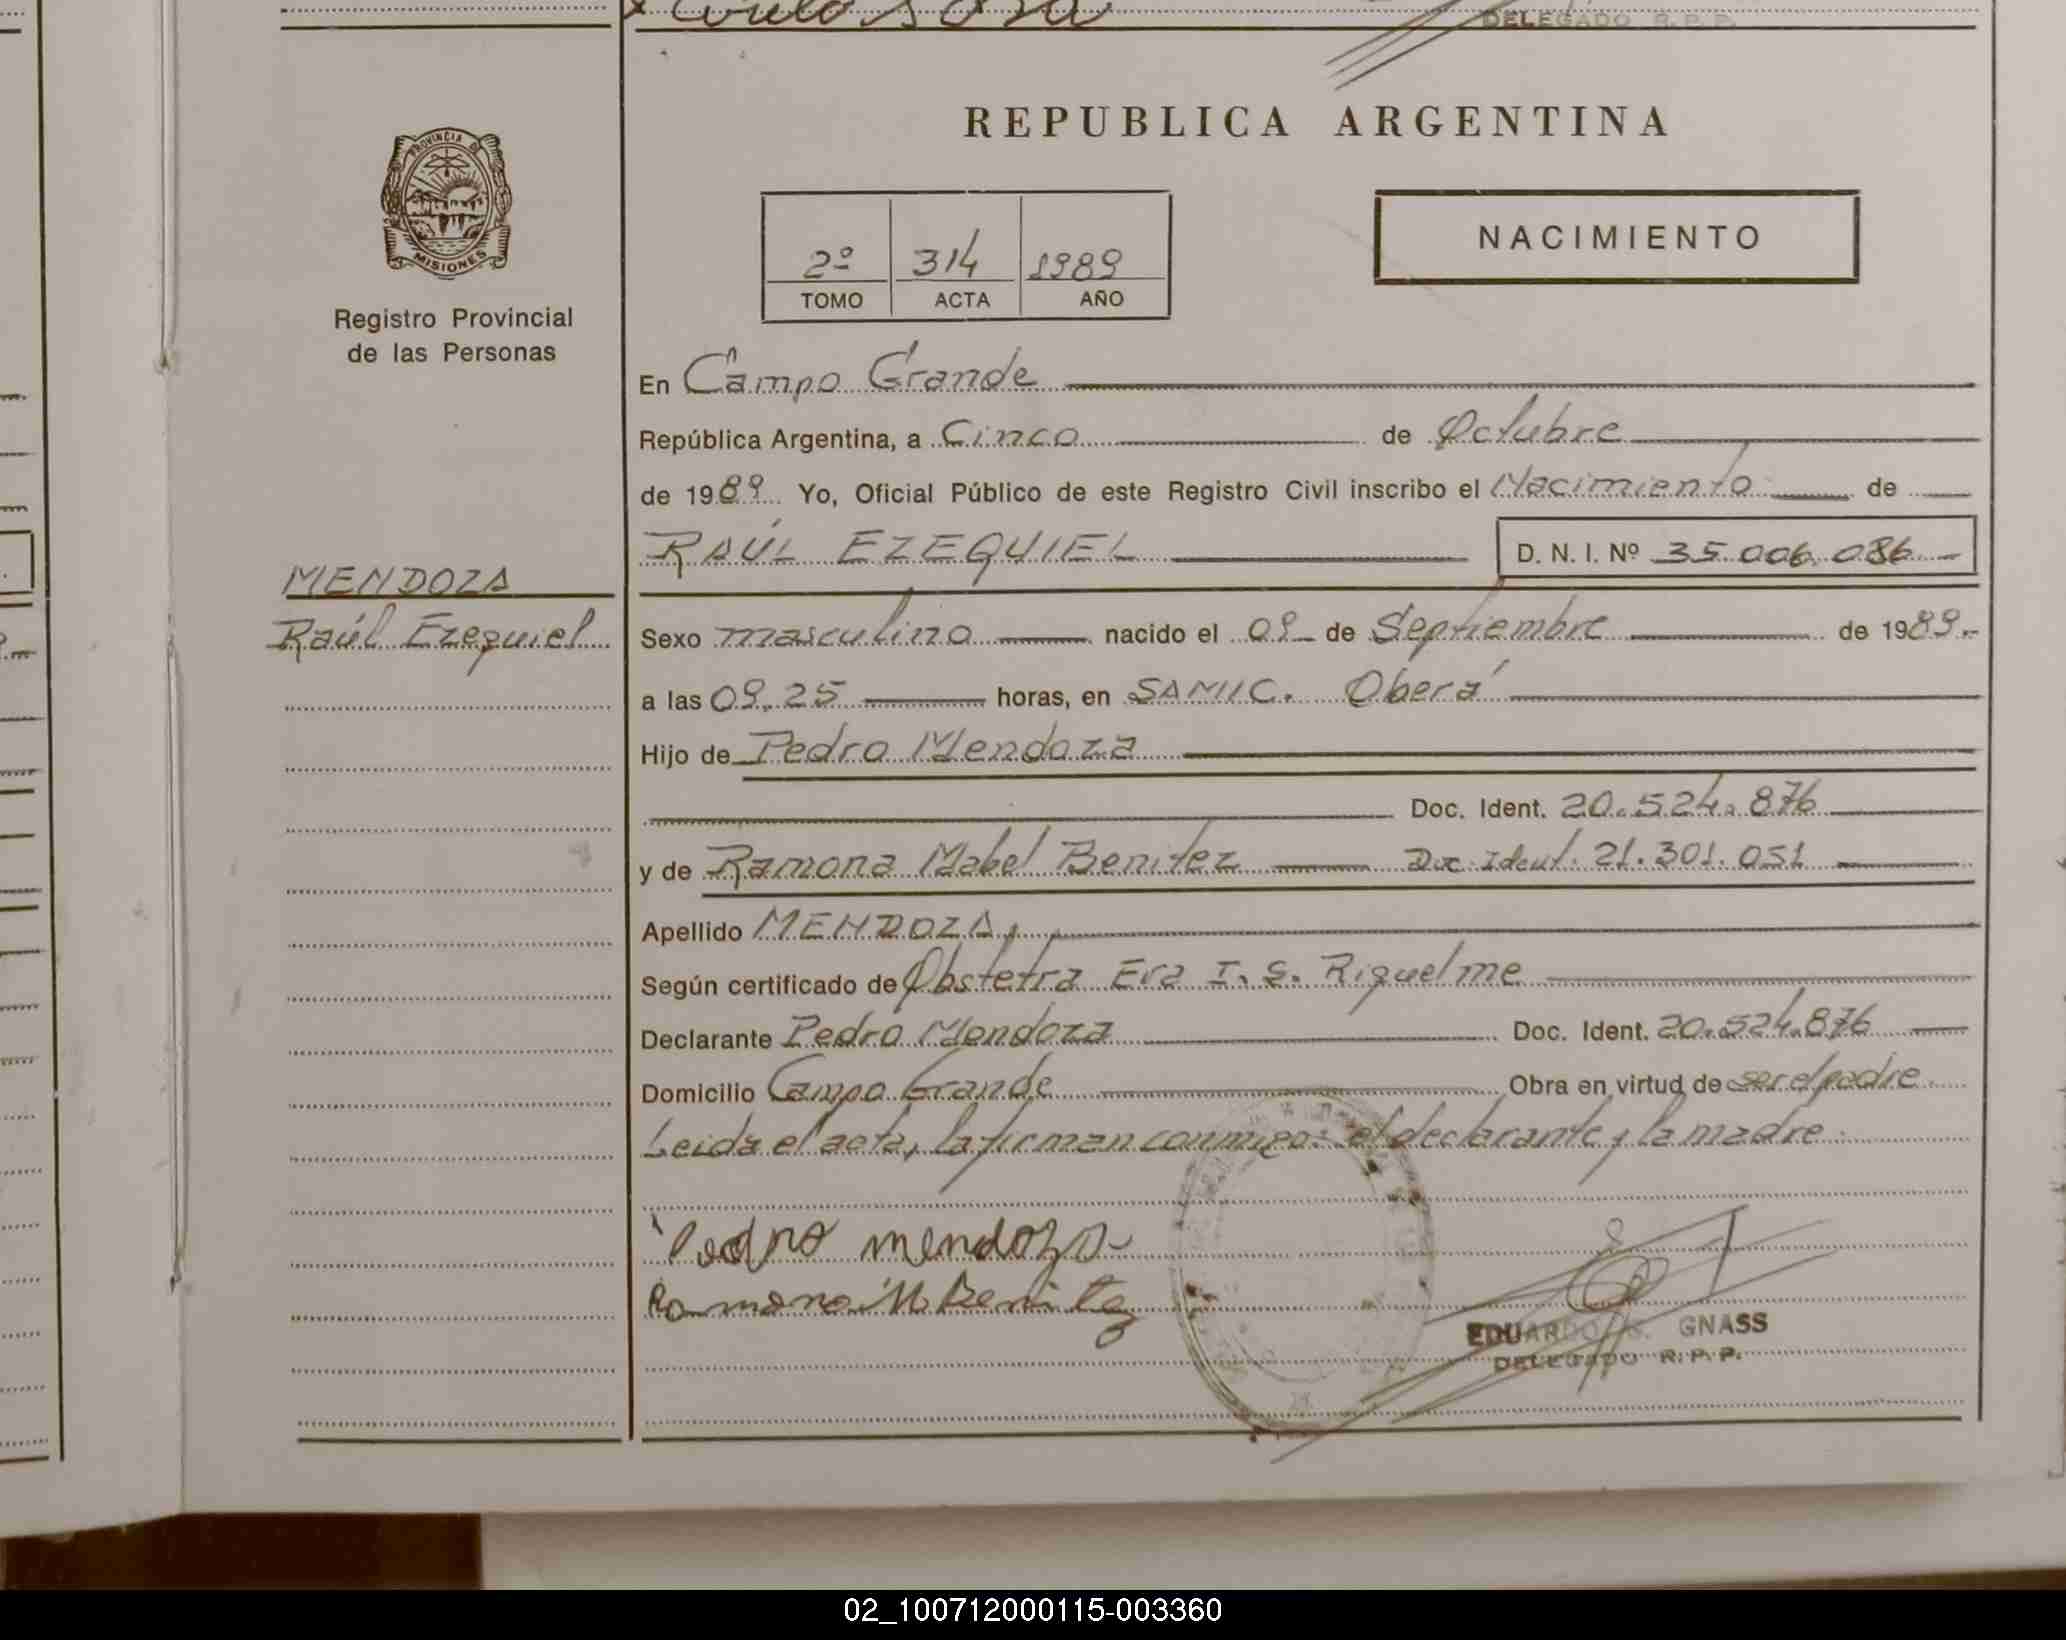 DELEGADO R. P. P.
REPUBLICA ARGENTINA
PROVINCIA DE
MISIONES
Registro Provincial
de las Personas
2º 314 1989
TOMO ACTA AÑO
NACIMIENTO
En Campo Grande
República Argentina, a Cinco de Octubre
de 1989 Yo, Oficial Público de este Registro Civil inscribo el Nacimiento de
RAÚL EZEQUIEL D. N. I. Nº 35.006.086
MENDOZA
Raúl Ezequiel
Sexo masculino nacido el 09 de Septiembre de 1989.-
a las 09.25 horas, en SAMIC. Oberá
Hijo de Pedro Mendoza
Doc. Ident. 20.524.876
y de Ramona Mabel Benitez Doc. Ident. 21.301.051
Apellido MENDOZA
Según certificado de Obstetra Eva I. S. Riquelme
Declarante Pedro Mendoza Doc. Ident. 20.524.876
Domicilio Campo Grande Obra en virtud de ser el padre
Leída el acta, la firman conmigo: el declarante y la madre.
Pedro mendoza
Ramona M Benitez
EDUARDO G. GNASS
DELEGADO R. P. P.
02_100712000115-003360